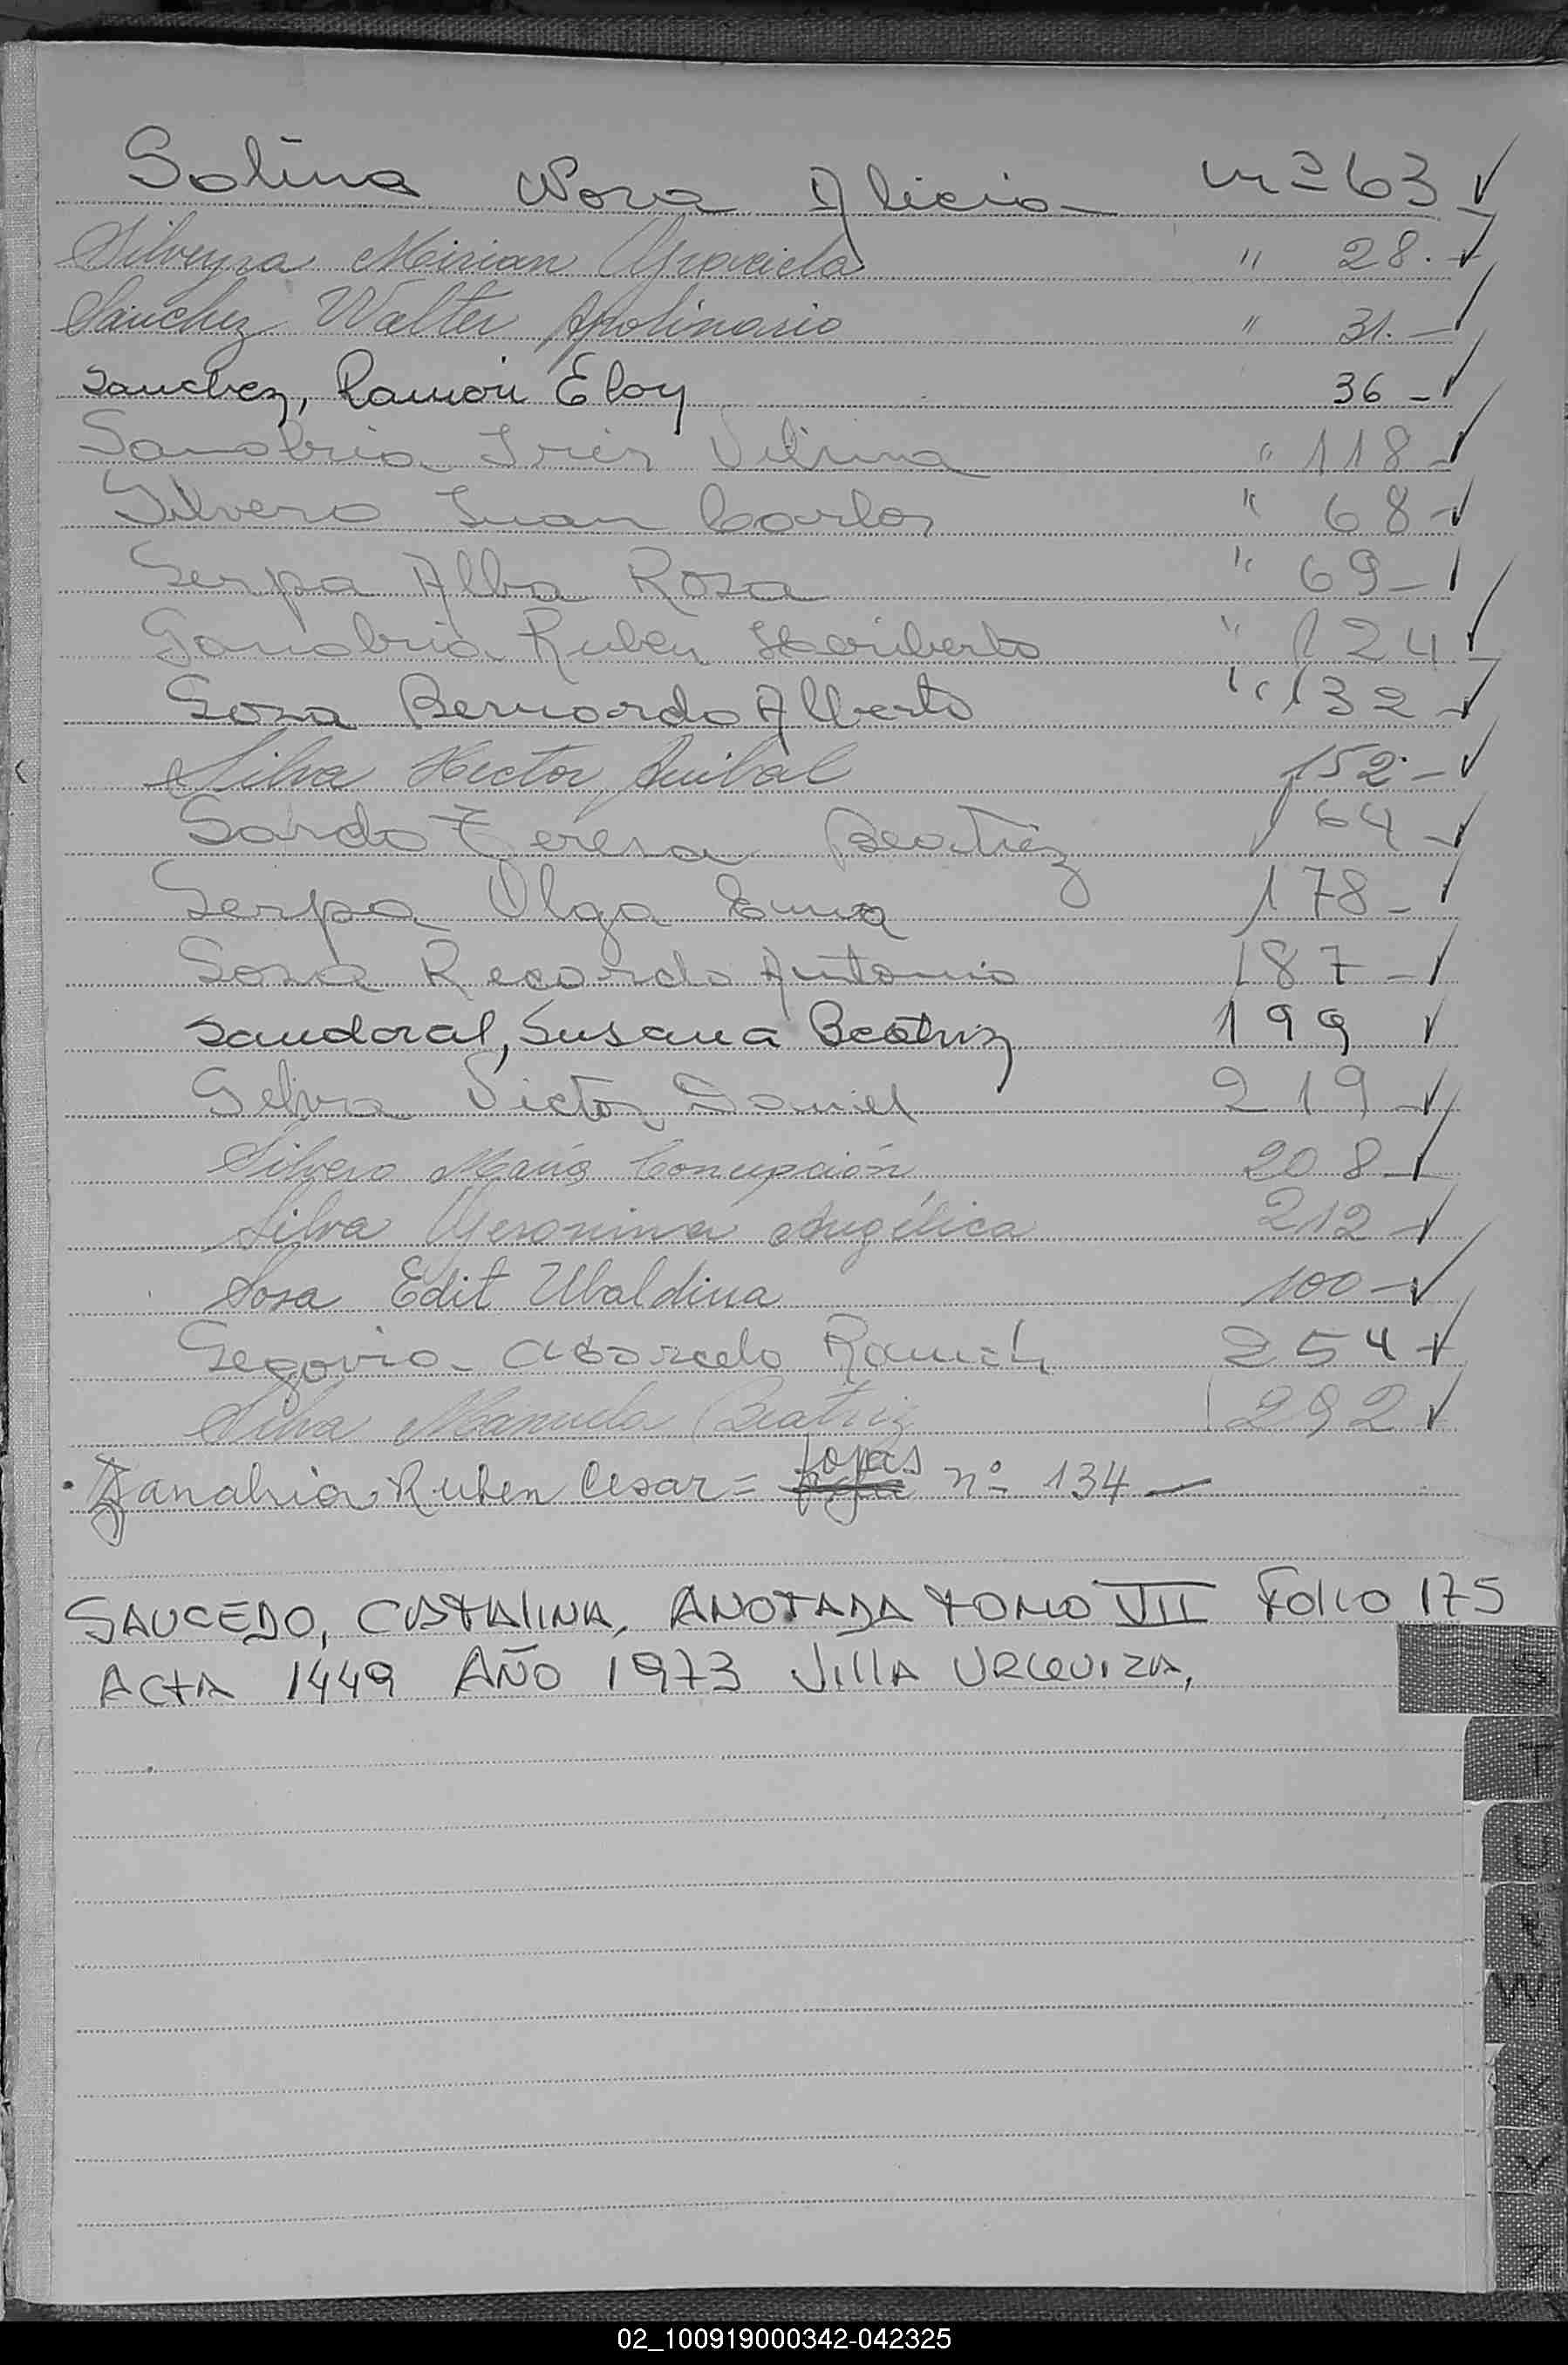 Solina Nora Alicia – nº 63 ✓
Silveyra Mirian Graciela " 28. – ✓
Sánchez Walter Apolinario " 31. – ✓
Sanchez, Ramón Eloy 36 – ✓
Sanabria Iris Vilma " 118 – ✓
Silvero Juan Carlos " 68 – ✓
Serpa Alba Rosa " 69 – ✓
Sanabria Rubén Heriberto " 124 – ✓
Sosa Bernardo Alberto " 132 – ✓
Silva Hector Anibal 152 – ✓
Sardo Teresa Beatriz 164 – ✓
Serpa Olga Ema 178 – ✓
Sosa Recardo Antonio 187 – ✓
Sandoval, Susana Beatriz 199 ✓
Selva Victor Daniel 219 – ✓
Silvero María Concepción 208 – ✓
Silva Geronima Angélica 212 – ✓
Sosa Edit Ubaldina 100 – ✓
Segovia Marcelo Ramón 254 ✓
Silva Manuela Beatriz 292 ✓
Sanabria Ruben Cesar = fojas nº 134 –
SAUCEDO, CATALINA, ANOTADA TOMO VII FOLIO 175
ACTA 1449 AÑO 1973 VILLA URQUIZA,
S
T
U
W
X
Y
Z
02_100919000342-042325